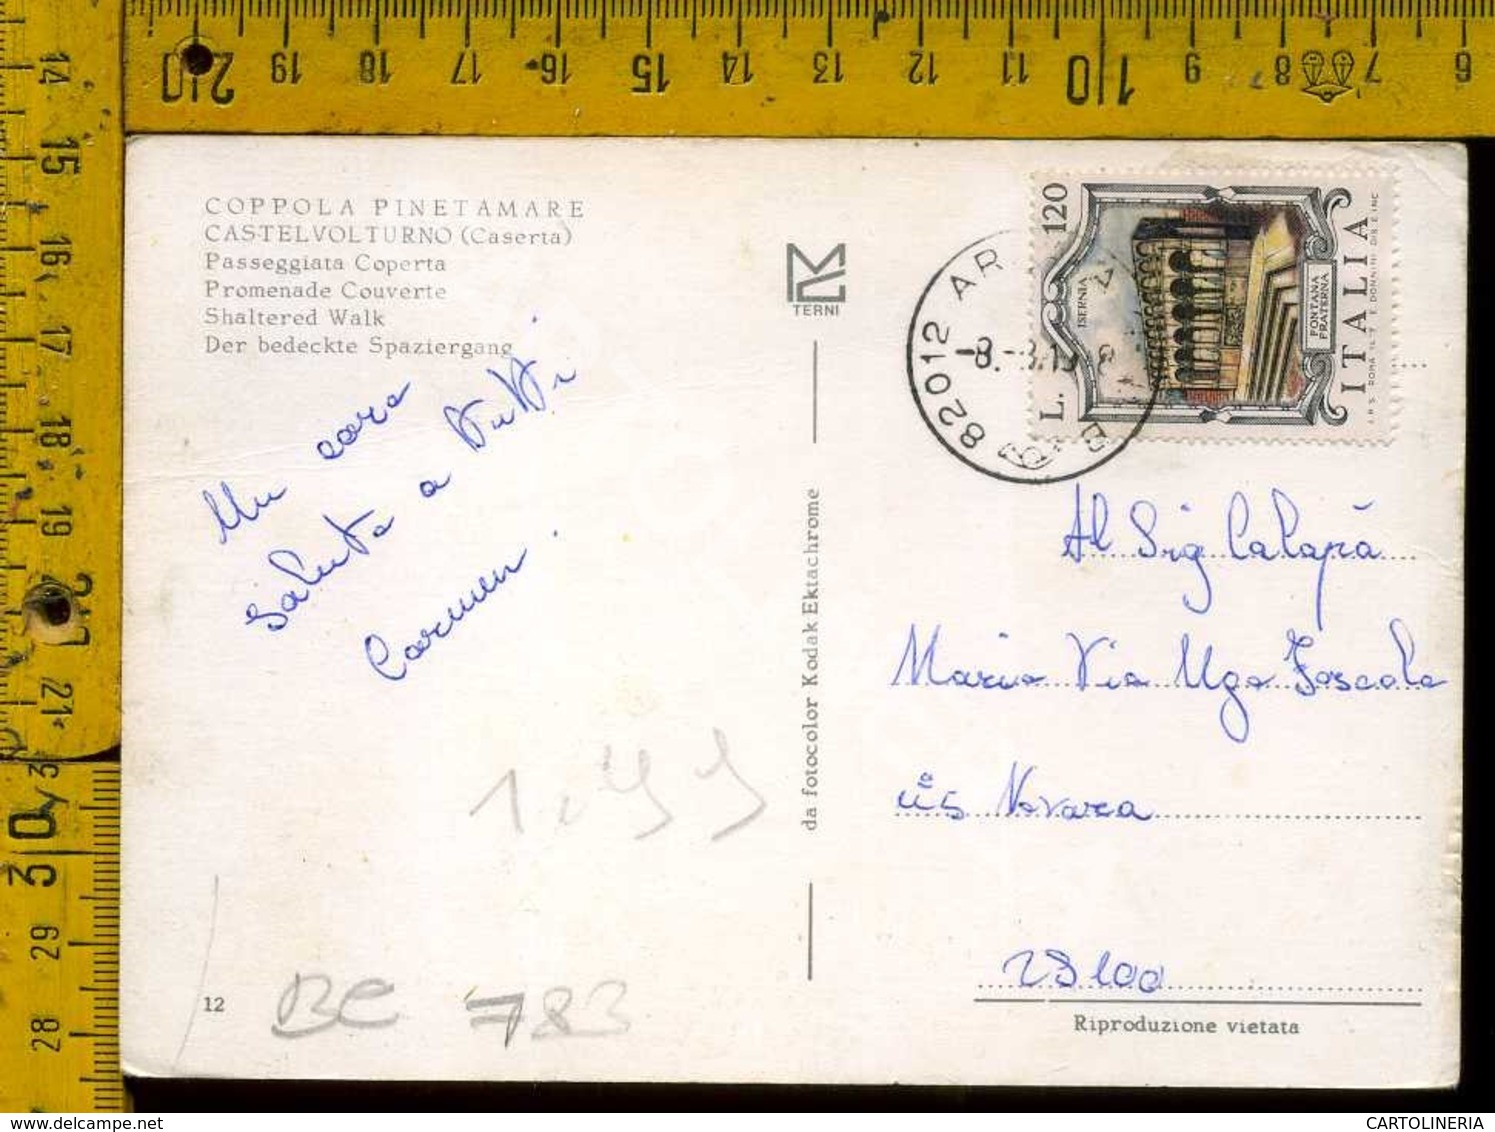 COPPOLA PINETAMARE
CASTELVOLTURNO (Caserta)
Passeggiata Coperta
Promenade Couverte
Shaltered Walk
Der bedeckte Spaziergang
Un caro
saluto a tutti
Carmen.
TERNI
da fotocolor Kodak Ektachrome
82012 AR
-8.-8.19
L. 120
ISERNIA
FONTANA
FRATERNA
ITALIA
I.P.S. ROMA
E. DONNINI DIS. E INC.
Al Sig Calapà
Mario Via Ugo Foscolo
n°5 Novara
28100
Riproduzione vietata
1,99
12
BC 783
20 19 18 17 16 15 14 13 12 11 10 9 8 7 6
14
15
16
17
18
19
20
21
3
30
29
28
www.delcampe.net
CARTOLINERIA